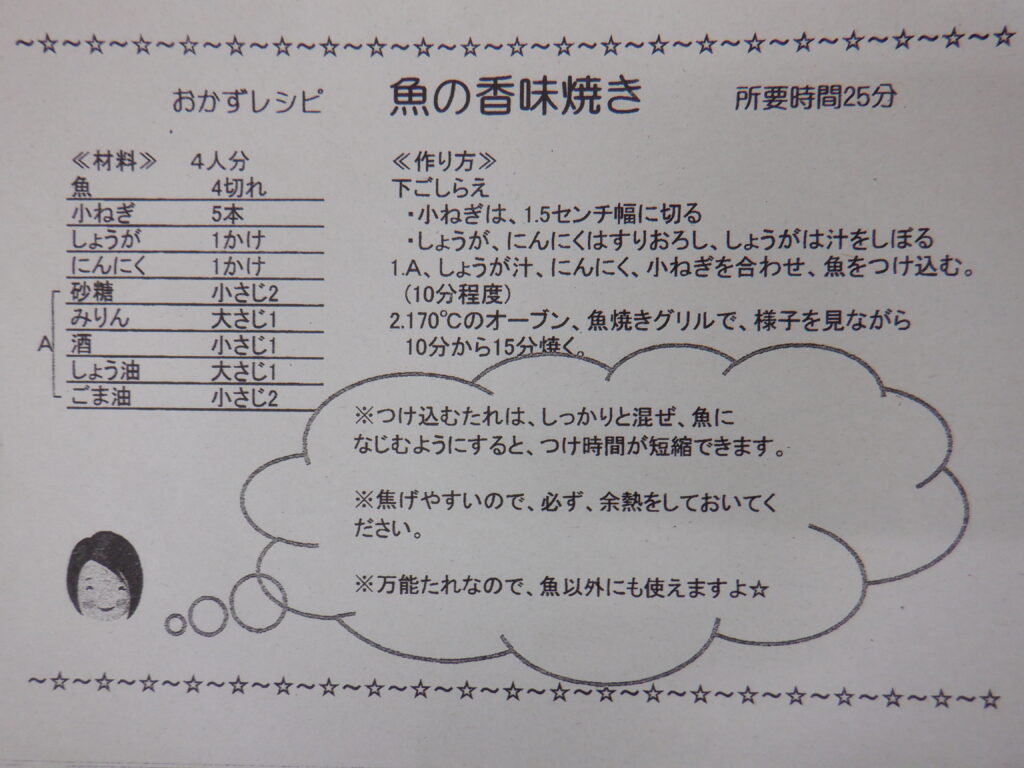 ~☆~☆~☆~☆~☆~☆~☆~☆~☆~☆~☆~☆~☆~☆~☆~☆~☆~☆~☆~☆~☆
おかずレシピ 魚の香味焼き 所要時間25分
≪材料≫ 4人分
魚 4切れ
小ねぎ 5本
しょうが 1かけ
にんにく 1かけ
A
砂糖 小さじ2
みりん 大さじ1
酒 小さじ1
しょう油 大さじ1
ごま油 小さじ2
≪作り方≫
下ごしらえ
・小ねぎは、1.5センチ幅に切る
・しょうが、にんにくはすりおろし、しょうがは汁をしぼる
1.A、しょうが汁、にんにく、小ねぎを合わせ、魚をつけ込む。
(10分程度)
2.170℃のオーブン、魚焼きグリルで、様子を見ながら
10分から15分焼く。
※つけ込むたれは、しっかりと混ぜ、魚に
なじむようにすると、つけ時間が短縮できます。
※焦げやすいので、必ず、余熱をしておいてく
ださい。
※万能たれなので、魚以外にも使えますよ☆
~☆~☆~☆~☆~☆~☆~☆~☆~☆~☆~☆~☆~☆~☆~☆~☆~☆~☆~☆~☆~☆